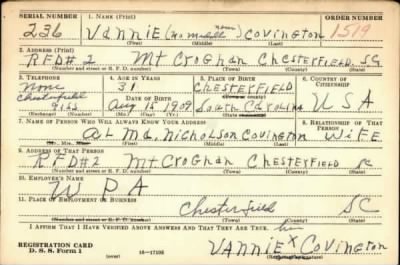 SERIAL NUMBER 1. NAME (Print) ORDER NUMBER
236 VANNIE (no middle name) COVINGTON 1519
(First) (Middle) (Last)
2. ADDRESS (Print)
RFD# 2 Mt Croghan CHESTERFIELD, SC
(Number and street or R. F. D. number) (Town) (County) (State)
3. TELEPHONE 4. AGE IN YEARS 5. PLACE OF BIRTH 6. COUNTRY OF CITIZENSHIP
none 31 CHESTERFIELD
Chesterfield DATE OF BIRTH (Town or county)
Aug 15 1909 South CAROLINA USA
(Exchange) (Number) (Mo.) (Day) (Yr.) (State or country)
7. NAME OF PERSON WHO WILL ALWAYS KNOW YOUR ADDRESS 8. RELATIONSHIP OF THAT PERSON
Nicholson Covington WIFE
(Mr., Mrs., Miss) (First) (Middle) (Last)
9. ADDRESS OF THAT PERSON
RFD#2 Mt Croghan CHESTERFIELD SC
(Number and street or R. F. D. number) (Town) (County) (State)
10. EMPLOYER'S NAME
WPA
11. PLACE OF EMPLOYMENT OR BUSINESS
Chesterfield SC
(Number and street or R. F. D. number) (Town) (County) (State)
I AFFIRM THAT I HAVE VERIFIED ABOVE ANSWERS AND THAT THEY ARE TRUE. his
REGISTRATION CARD VANNIE X COVINGTON
D. S. S. Form 1 (over) 16-17105 (Registrant's signature)